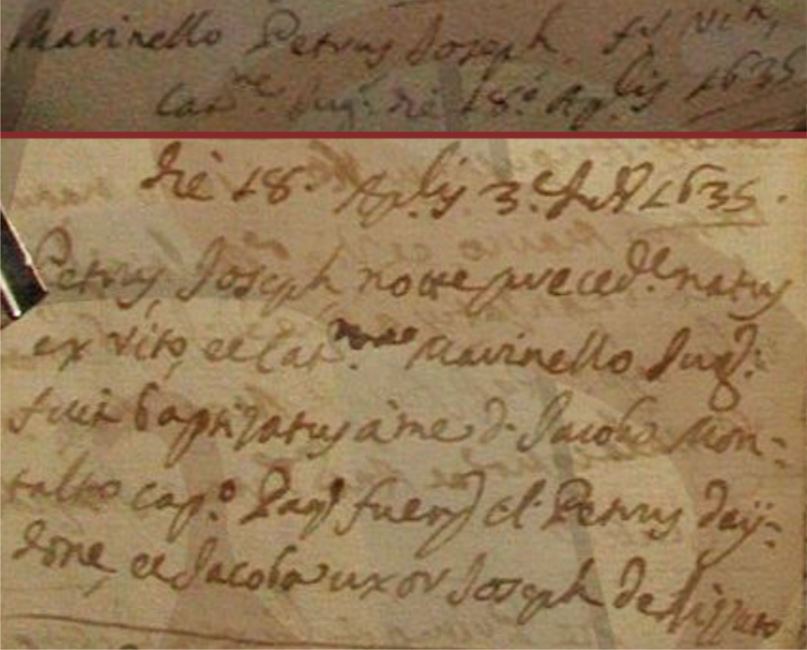 Marinello Petrus Joseph. f.s Viti,
Cat.ne Jug. die 18.o Ap.lis 1635
die 18. Ap.lis 3.e Ind. 1635.
Petrus Joseph nocte preced.te natus
ex Vito, et Cat.ne Marinello Jug:
fuit baptizatus a me d. Jacobo Mon-
talto cap.o Pag fuer cl. Petrus Day-
done, et Jacoba uxor Joseph de